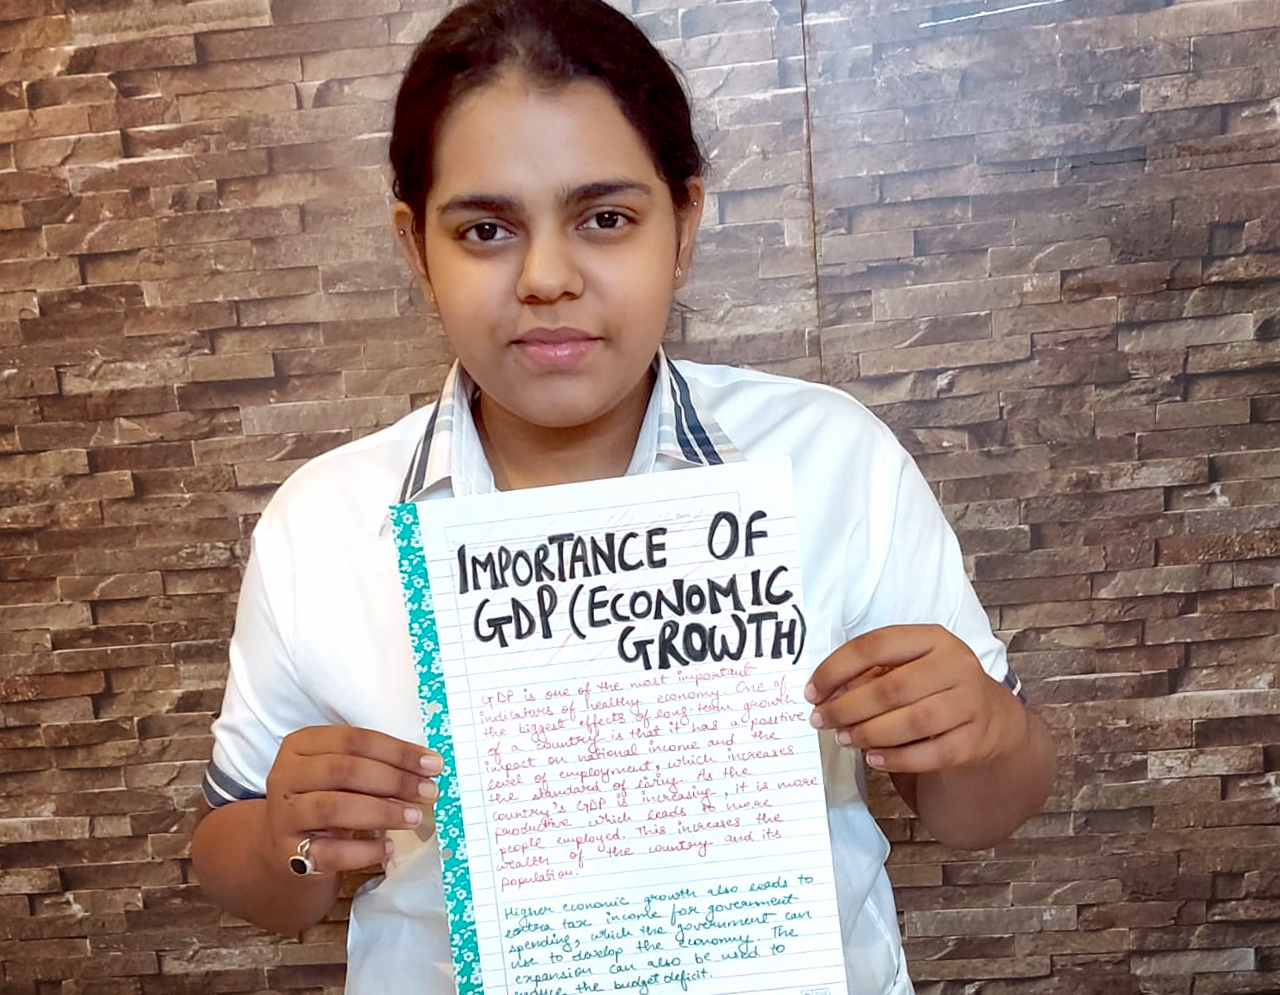 IMPORTANCE OF
GDP (ECONOMIC
GROWTH)
GDP is one of the most important
indicators of healthy economy. One of
the biggest effects of long-term growth
of a country is that it has a positive
impact on national income and the
level of employment, which increases
the standard of living. As the
country's GDP is increasing, it is more
productive which leads to more
people employed. This increases the
wealth of the country and its
population.
Higher economic growth also leads to
extra tax income for government
spending, which the government can
use to develop the economy. The
expansion can also be used to
reduce the budget deficit.